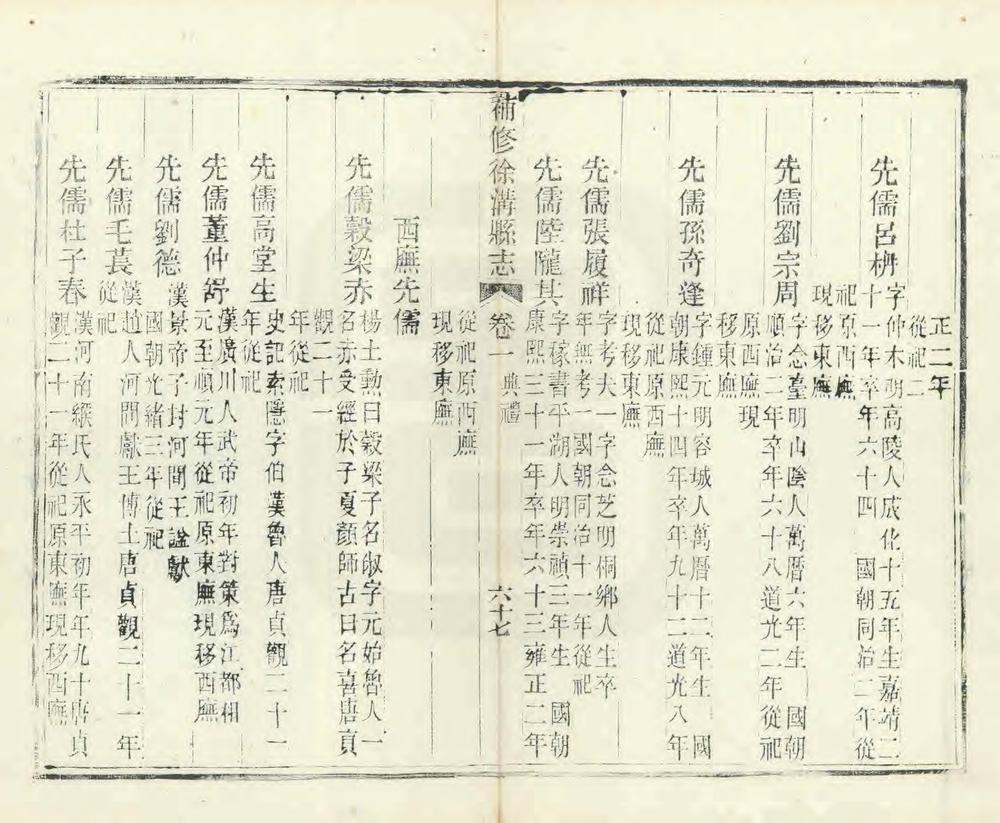 正二年
從祀二
先儒呂柟
字仲木明高陵人成化十五年生嘉靖二
十一年卒年六十四　國朝同治二年從
祀原西廡
現移東廡
先儒劉宗周
字念臺明山陰人萬曆六年生　國朝
順治二年卒年六十八道光二年從祀
原西廡現
移東廡
先儒孫奇逢
字鍾元明容城人萬曆十二年生　國
朝康熙十四年卒年九十二道光八年
從祀原西廡
現移東廡
先儒張履祥
字考夫一字念芝明桐鄉人生卒
年無考　國朝同治十一年從祀
先儒陸隴其
字稼書平湖人明崇禎三年生　國朝
康熙三十一年卒年六十三雍正二年
補修徐溝縣志　卷一　典禮　六十七
從祀原西廡
現移東廡
西廡先儒
先儒穀梁赤
楊士勳曰穀梁子名俶字元始魯人一
名赤受經於子夏顏師古曰名喜唐貞
觀二十一
年從祀
先儒高堂生
史記索隱字伯漢魯人唐貞觀二十一
年從祀
先儒董仲舒
漢廣川人武帝初年對策爲江都相
元至順元年從祀原東廡現移西廡
先儒劉德
漢景帝子封河間王諡獻
國朝光緒三年從祀
先儒毛萇
漢趙人河間獻王博士唐貞觀二十一年
從祀
先儒杜子春
漢河南緱氏人永平初年年九十唐貞
觀二十一年從祀原東廡現移西廡